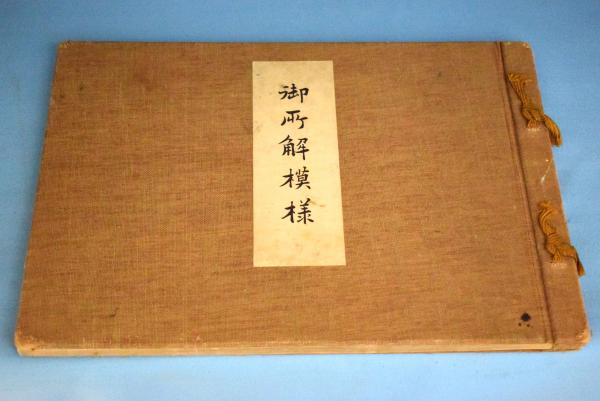 御所解模様